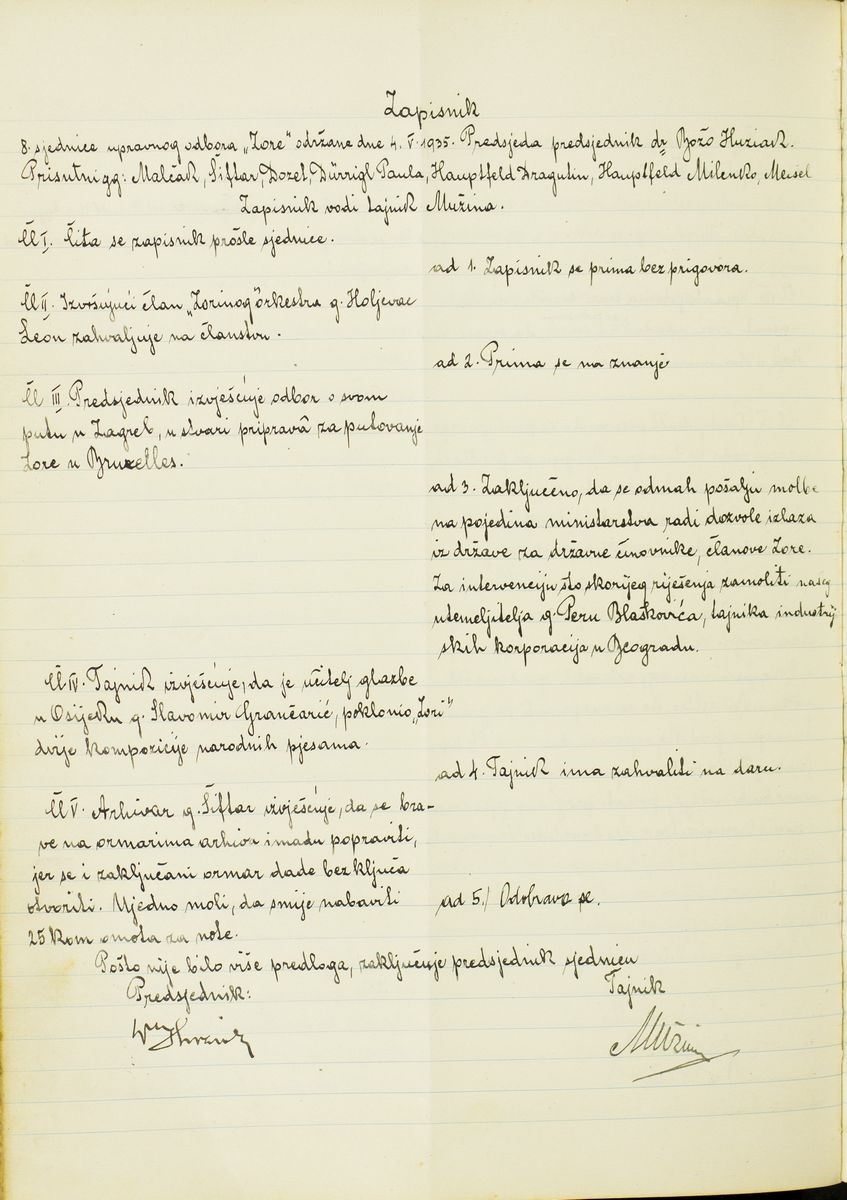 Zapisnik
8. sjednice upravnog odbora „Zore" održane dne 4. V. 1935. Predsjeda predsjednik dr Božo Huziak.
Prisutni gg: Malčak, Šiftar, Dozet, Dürrigl Paula, Hauptfeld Dragutin, Hauptfeld Milenko, Meisel
Zapisnik vodi tajnik Mužina.
Čl I. Čita se zapisnik prošle sjednice.
ad 1. Zapisnik se prima bez prigovora.
Čl II. Izvršujući član „Zorinog" orkestra g. Holjevac
Leon zahvaljuje na članstvu.
ad 2. Prima se na znanje
Čl III. Predsjednik izvješćuje odbor o svom
putu u Zagreb, u stvari pripravâ za putovanje
Zore u Bruxelles.
ad 3. Zaključeno, da se odmah pošalju molbe
na pojedina ministarstva radi dozvole izlaza
iz države za državne činovnike, članove Zore.
Za intervenciju što skorijeg riješenja zamoliti našeg
utemeljitelja g. Peru Blaškovića, tajnika industrij
skih korporacija u Beogradu.
Čl IV. Tajnik izvješćuje, da je učitelj glazbe
u Osijeku g. Slavomir Grančarić, poklonio „Zori"
dvije kompozicije narodnih pjesama.
ad 4. Tajnik ima zahvaliti na daru.
Čl V. Arhivar g. Šiftar izvješćuje, da se bra-
ve na ormarima arhiva imadu popraviti,
jer se i zaključani ormar dade bez ključa
otvoriti. Ujedno moli, da smije nabaviti
25 kom omota za note.
ad 5./ Odobrava se.
Pošto nije bilo više predloga, zaključuje predsjednik sjednicu
Predsjednik: Tajnik
Mužina